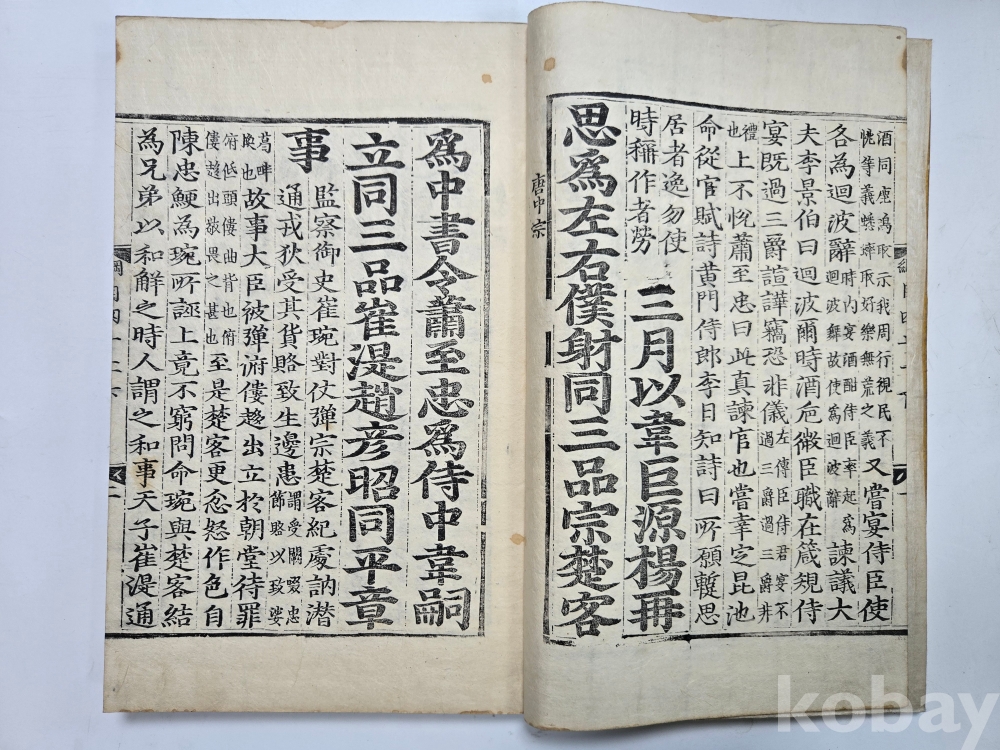 酒同座爲取示我周行視民不
恍等義蟋蟀取好樂無荒之義
又嘗宴侍臣使
各為迴波辭時內宴酒酣侍臣率起為迴波舞故使為迴波辭諫議大
夫李景伯曰迴波爾時酒卮微臣職在箴規侍
宴既過三爵諠譁竊恐非儀左傳臣侍君宴不過三爵過三爵非
禮也上不悅蕭至忠曰此真諫官也嘗幸定昆池
命從官賦詩黃門侍郎李日知詩曰所願蹔思
居者逸勿使
時稱作者勞
三月以韋巨源楊再
思爲左右僕射同三品宗楚客
唐中宗
爲中書令蕭至忠爲侍中韋嗣
立同三品崔湜趙彥昭同平章
事
監察御史崔琬對仗彈宗楚客紀處訥潛
通戎狄受其貨賂致生邊患謂受闕啜忠節賂以致娑
葛畔喚也故事大臣被彈俯僂趍出立於朝堂待罪
俯低頭僂曲背也俯僂趍出敬畏之甚也至是楚客更忿怒作色自
陳忠鯁為琬所誣上竟不窮問命琬與楚客結
為兄弟以和解之時人謂之和事天子崔湜通
kobay